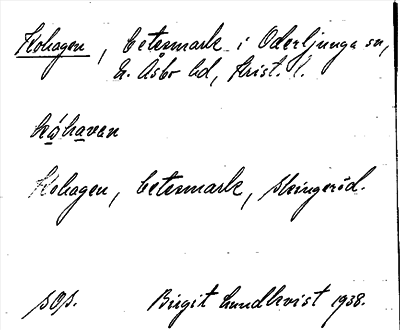 Kohagen, betesmark i Oderljunga sn,
N. Åsbo hd, Krist. l.
kóhavan
Kohagen, betesmark, Skingeröd.
sOp. Birgit Lundkvist 1938.